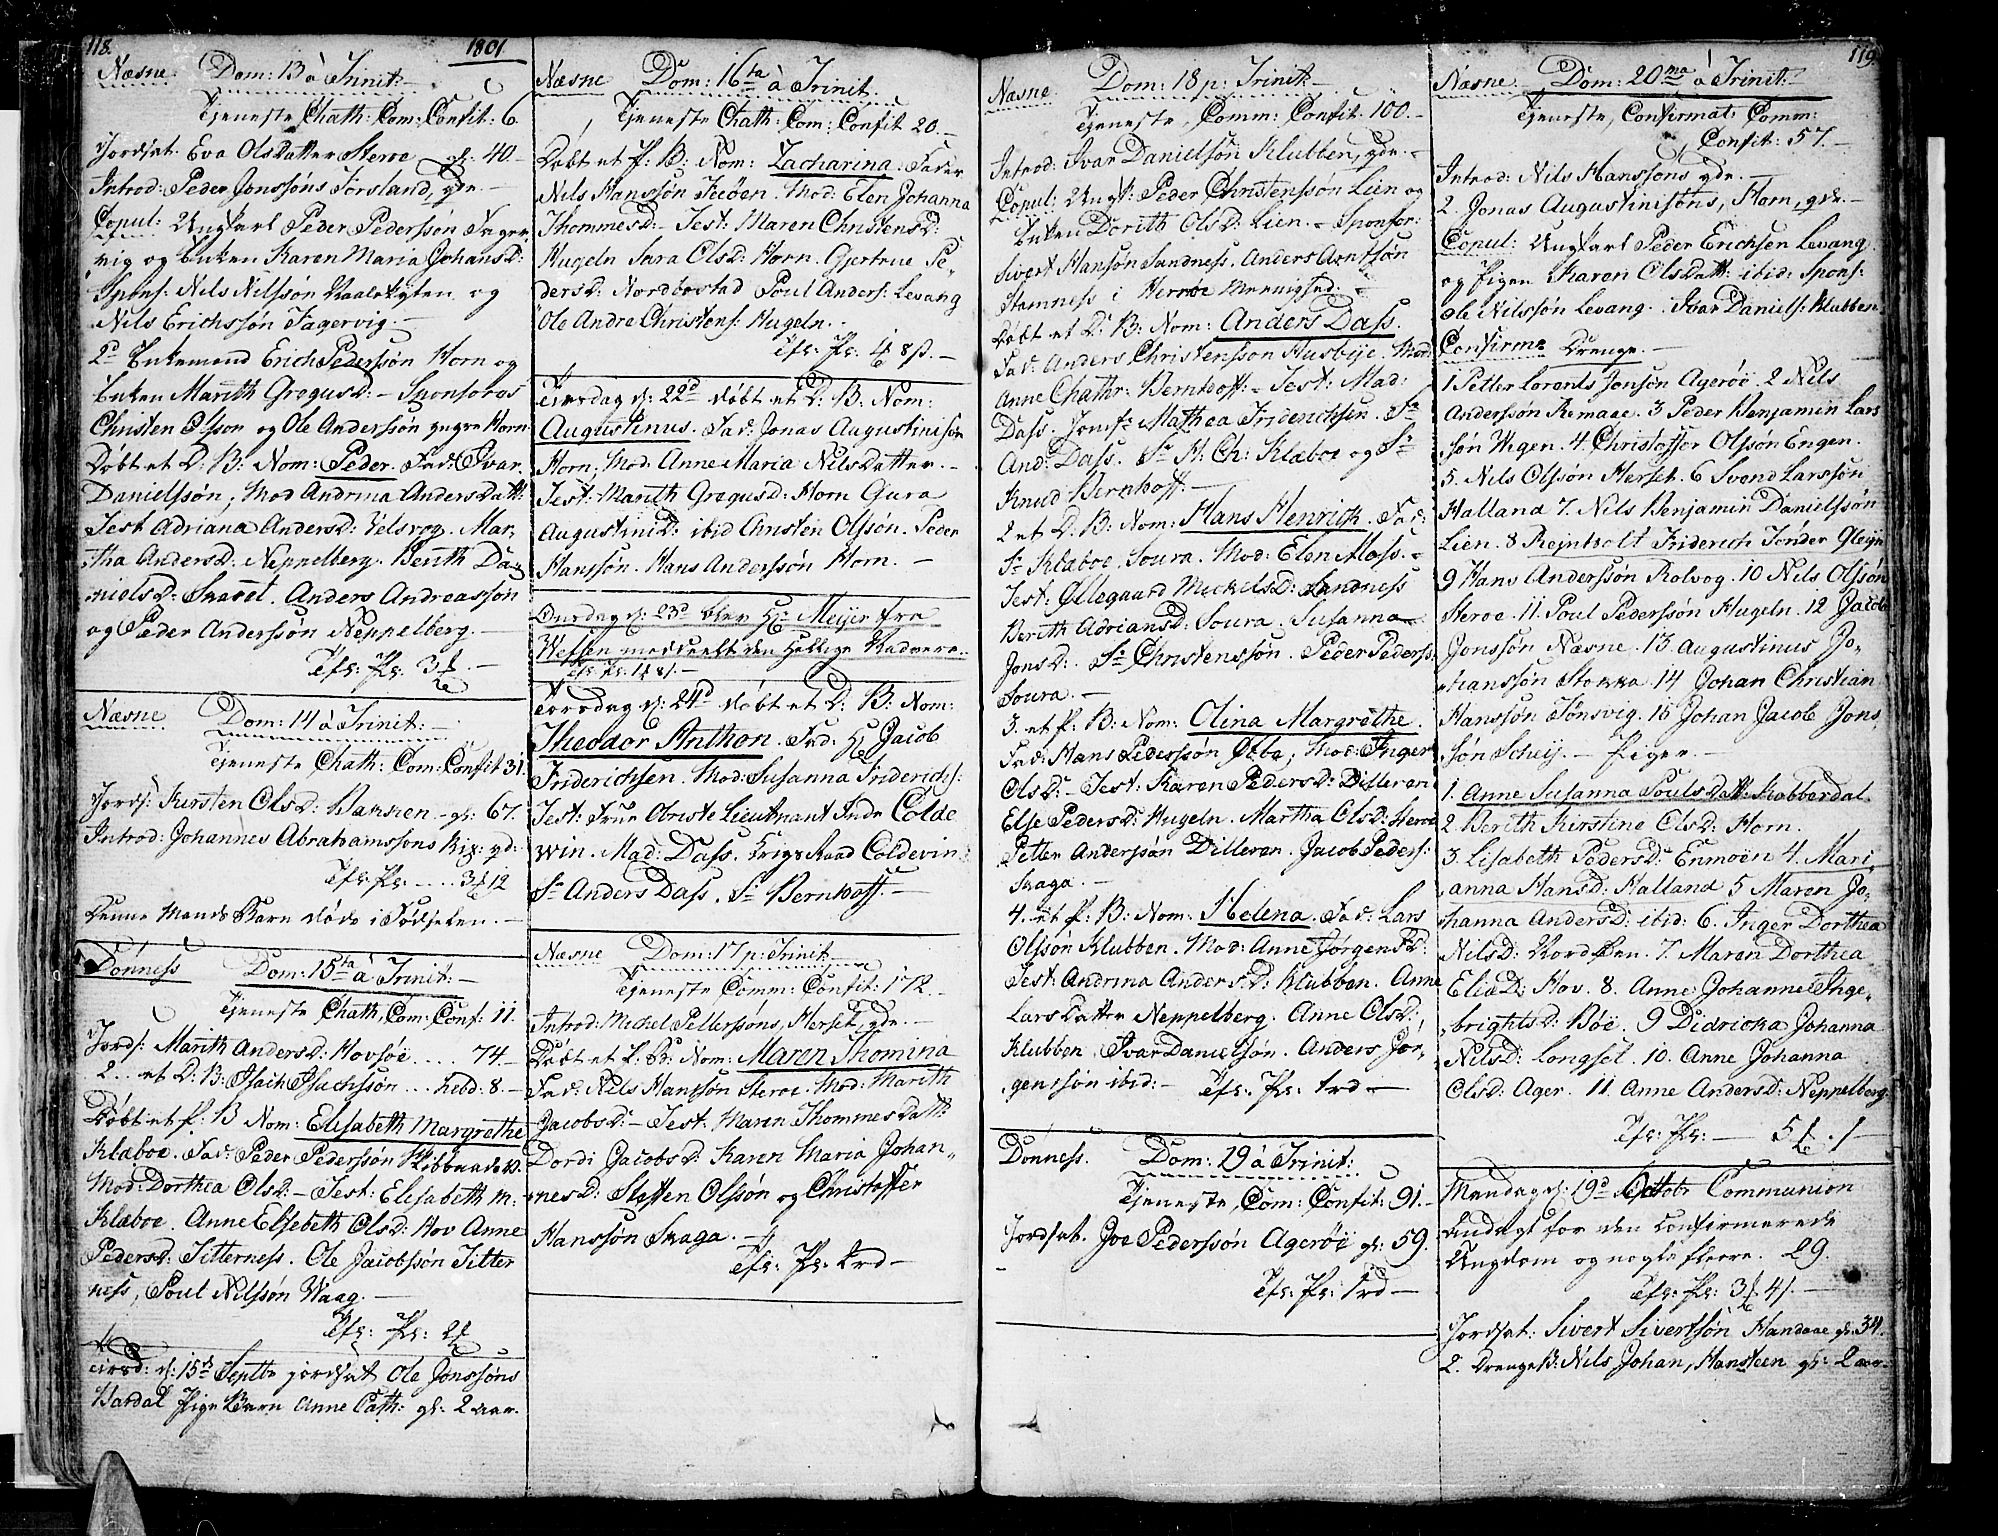 118.
1801
Næsne. Dom: 13 à Trinit:
Tjeneste Chath: Com: Confit: 6.
Jordsat. Eva OlsDatter Herrøe gl: 40
Introd: Peder Jonssøns Forsland, qde.
Copul: Ungkarl Peder Pederssøn Fager,
vig og Enken Karen Maria JohansD:
Spons: Nils Nilssøn og
Nils Erichssøn Fagervig.
2d Enkemand Erich Pederssøn Horn og
Enken Marith GregusD: Sponsores
Christen Olsson og Ole Anderssøn yngre Horn
Døbt et D: B: Nom: Peder. Fad: Ivar
Danielssøn, Mod Andrina Anders Datt:
Test Adriana AndersD: Velsvog. Mar,
tha AndersD: Neppelberg. Berith Da,
nielsD: Skavet. Anders Andreassøn
og Peder Anderssøn Neppelberg.
Tfr: Pr: 3
Næsne Dom: 14 à Trinit:
Tjeneste Chath: Com: Confit 31
Jords: Kirsten OlsD: Banken gl: 67.
Introd: Johannes Abrahamssøns Rix: qd:
Tfr: Pr: .... 3 12
Denne Mands Barn døde i Fødselen.
Dønness Dom: 15ta à Trinit:
Tjeneste Chath: Com: Conf: 11.
Jords: Marith AndersD: Hovsøe .... 74.
2. et D: B: Isach Isachssøn ... held: 8.
Døbt et P: B Nom: Elisabeth Margrethe
Klæboe. Fad: Peder Pederssøn
Mod: Dorthea OlsD: Test: Elisabeth M:
Klæboe. Anne Elsebeth OlsD: Hov Anne
PedersD: Titterness. Ole Jacobssøn Titter
ness, Poul Nilssøn Waag.
Tfr: Pr: 2
Tirsd: d: 15d Septbr jordsat Ole Jonssøns
Hardal Pige Barn Anne Cath: gl: 2 aar.
Næsne Dom: 16ta à Trinit.
Tjeneste Chath: Com: Confit 20.
Døbt et P: B: Nom: Zacharina. Fader
Nils Hanssøn . Mod: Elen Johanna
ThommesD: Test: Maren ChristensD:
Hugeln Sara OlsD: Horn. Gjertrue Pe,
dersD: Nordbostad Poul Anders: Levang
Ole Andre Christens: Hugeln.
Tfr: Pr: 4 8 ß.
Tirsdag d: 22d døbt et D: B: Nom:
Augustinus. Fad: Jonas Augustinisøn
Horn, Mod: Anne Maria NilsDatter.
Test: Marith GregusD: Horn Gura
AugustiniD: ibid Christen Olssøn. Peder
Hanssøn. Hans Anderssøn Horn.
Onsdag d: 23d blev Hr: Meijer fra
Wefsen meddeelt den Hellige Nadvere.
Tfr: Pr: 1 8
Torsdag d: 24d døbt et D: B: Nom:
Theodor Anthon. Fad: Hr Jacob
Friderichsen. Mod: Susanna Friderichs:
Test: Frue Obriste Lieutnant Inde Colde
win. Mad: Dass. Krigs Raad Coldevin:
Sr Anders Dass. Sr Bernhoff.
Næsne Dom: 17 p: Trinit
Tjeneste Comm: Confit: 172
Introd: Mickel Petterssøns, Herset, qde.
Døbt et P: B: Nom: Maren Thomina
Fad: Nils Hanssøn Herrøe. Mod: Marith
JacobsD: Test: Maren Thommes Datt:
Dordi JacobsD: Karen Maria Johan,
nesD: Steffen Olssøn og Christoffer
Hanssøn Skaga.
Tfr: Pr: 1rd
119.
Næsne Dom: 18 p: Trinit
Tjeneste, Comm: Confit: 100.
Introd: Ivar Danielssøn Klubben, qde.
Copul: Ungk: Peder Christenssøn Lien og
Enken Dorith OlsD: Lien. Sponsor:
Sivert Hansøn Sandness. Anders Arntsøn
Stamness i Herrøe Mennighed.
Døbt et D: B: Nom: Anders Dass.
Fad: Anders Christenssøn Husbye. Mod:
Anne Chathr: Bernhoff: Test: Mad:
Dass. Jomfr: Mathea Friderichsen. Sr
And: Dass. Sr H: Ch: Klæboe og Sr
Knud Bernhoff.
2 et D: B: Nom: Hans Henrich. Fad:
Sr Klæboe. Soura. Mod: Elen Moss.
Test: Øllegaard MickelsD: Sandness
Berith AdriansD: Soura. Susanna
JonsD: Sr Christenssøn. Peder Pederss:
Soura.
3. et P: B: Nom: Olina Margrethe.
Fad: Hans Pederssøn , Mod: Inger
OlsD: Test: Karen PedersD: Dilleren
Else PedersD: Hugeln. Martha OlsD: Herrøe
Petter Anderssøn Dilleren. Jacob Peders:
Skaga.
4. et P: B: Nom: Helena. Fad: Lars
Olssøn Klubben. Mod: Anne JørgensD:
Test: Andrina AndersD: Klubben. Anne
Lars Datter Neppelberg. Anne OlsD:
Klubben. Ivar Danielssøn. Anders Jør,
genssøn ibid: Tfr: Pr: 1rd
Dønness. Dom: 19 à Trinit:
Tjeneste, Com: Confit: 91.
Jordsat. Joe Pederssøn Agerøe gl: 59.
Tfr: Pr: 1rd
Næsne Dom: 20ma à Trinit:
Tjeneste, Confirmat: Comm:
Confit: 57.
Introd: Nils Hanssøns qde.
2. Jonas Augustinisøns, Horn, qde.
Copul: Ungkarl Peder Erichsen Levang
og Pigen Karen OlsDatt: ibid: Spons:
Ole Nilssøn Levang. Ivar Daniels: Klubben
Confirme Drenge.
1 Petter Lorents Jonsøn Agerøe. 2 Nils
Anderssøn Remaae. 3 Peder Benjamin Lars
søn Wigen. 4. Christoffer Olssøn Engen.
5. Nils Olssøn Herset. 6 Svend Larssøn
Halland 7. Nils Benjamin Danielssøn
Lien. 8 Rejnholt Friderich Tønder Gleijn
9 Hans Anderssøn Rolvog. 10 Nils Olssøn
Herøe. 11. Poul Pederssøn Hugeln. 12 Jacob
Jonssøn Næsne. 13. Augustinus Jo,
hanssøn Stokka 14 Johan Christian
Hanssøn Tønsvig. 15 Johan Jacob Jons,
søn Scheij. Piger.
1. Anne Susanna PoulsDatt: Kobberdal.
2. Berith Kirstine OlsD: Horn.
3. Lisabeth PedersD: Enmoen 4. Mari,
anna HansD: Halland 5 Maren Jo,
hanna AndersD: ibid: 6. Inger Dorthea
NilsD: Nord Øen. 7. Maren Dorthea
EliæD: Hov. 8. Anne Johanne Inge,
brightsD: Bøe. 9 Didricka Johanna
NilsD: Longset. 10. Anne Johanna
OlsD: Ager. 11 Anne AndersD: Neppelberg.
Tfr: Pr: 5
Mandag d: 19d Octobr Communion
Andagt for den Confirmerede
Ungdom og nogle fleere. 29.
Tfr: Pr: 3 4
Jordsat: Sivert Sivertsøn Handaae gl: 34.
2. DrengeB: Nils Johan, Hansteen gl: 2 aar